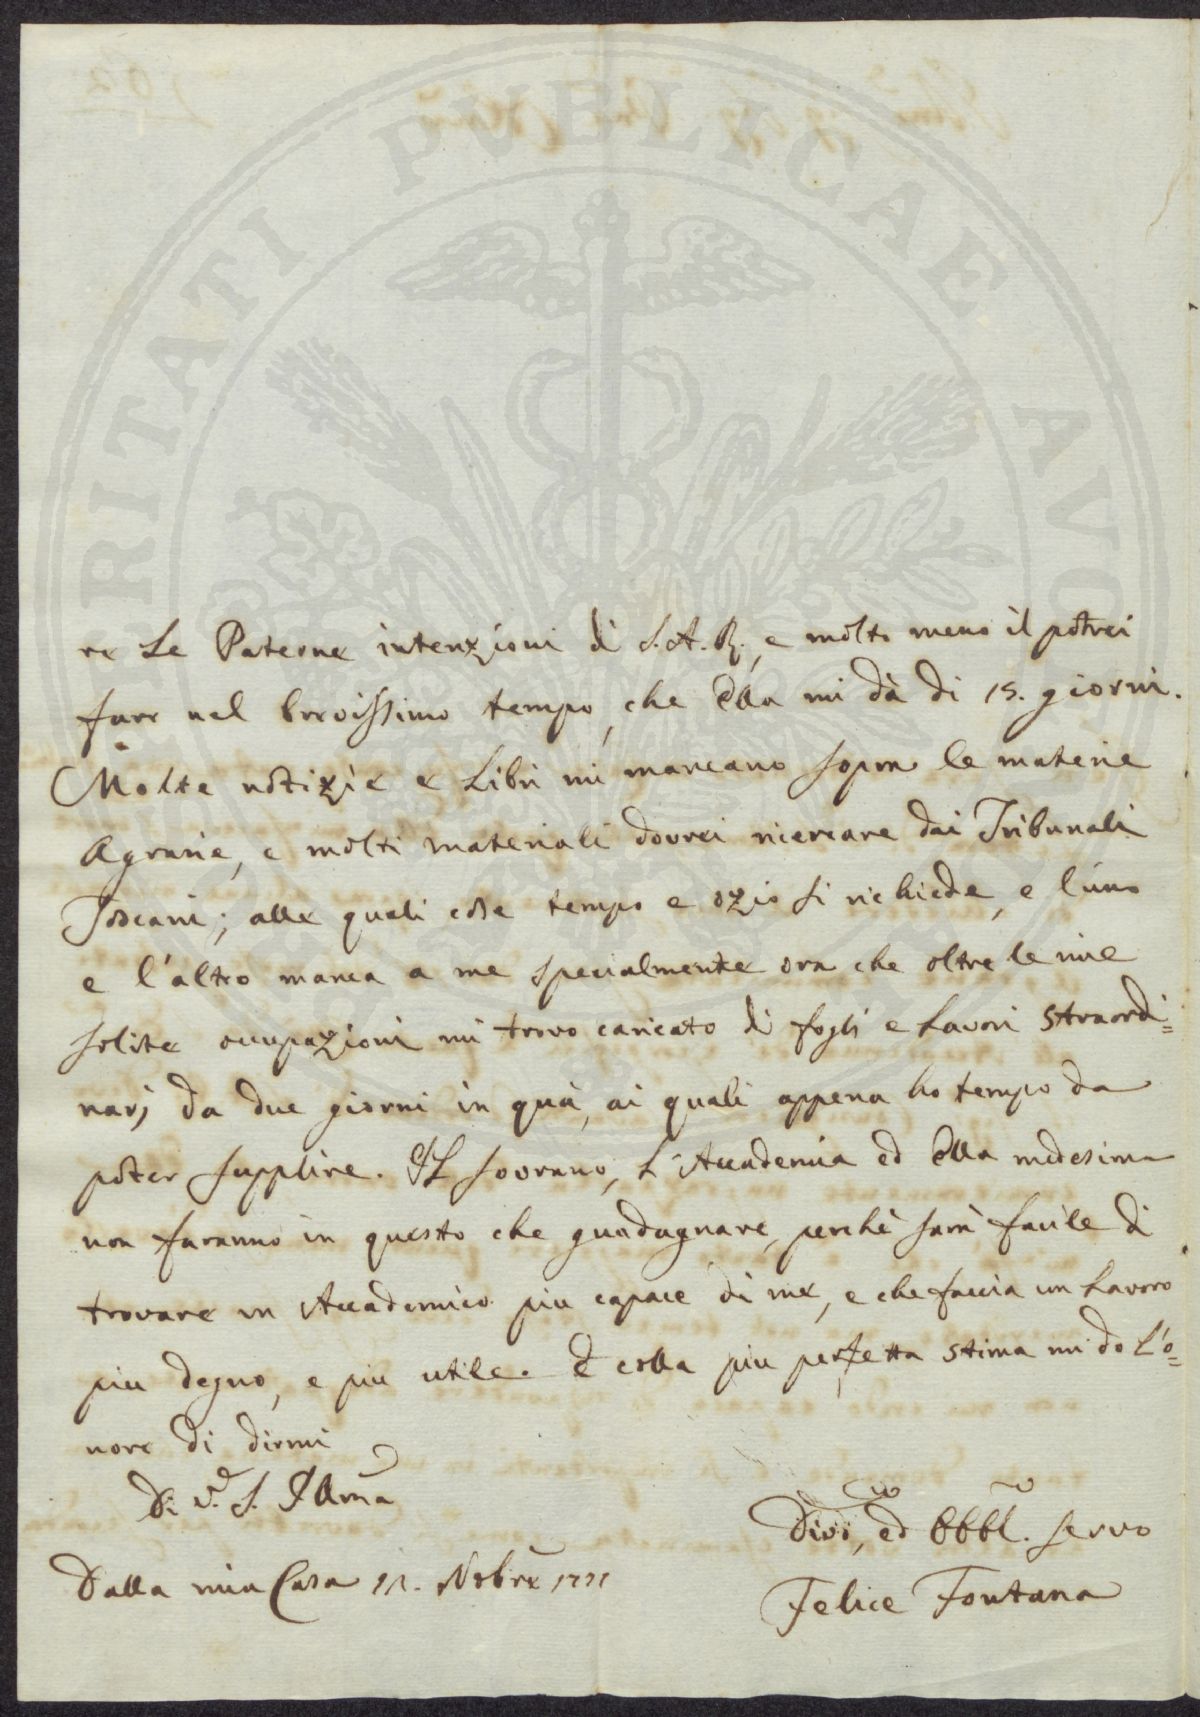 PVBLICAE
RITATI
AVG
re Le Paterne intenzioni di S.A.R., e molto meno il potrei
fare nel brevissimo tempo, che Ella mi dà di 15. giorni.
Molte notizie e Libri mi mancano sopra le materie
Agrarie, e molti materiali dovrei ricercare dai Tribunali
Toscani; alle quali cose tempo e ozio si richiede, e l'uno
e l'altro manca a me specialmente ora che oltre le mie
solite occupazioni mi trovo caricato di fogli e Lavori straordi=
narj da due giorni in quà, ai quali appena ho tempo da
poter supplire. Il Sovrano, L'Accademia ed Ella medesima
non faranno in questo che guadagnare, perchè sarà facile di
trovare un Accademico piu capace di me, e che faccia un Lavoro
piu degno, e piu utile. E colla piu perfetta stima mi do L'o=
nore di dirmi
Di V. S. Illma
Divo, ed Obbl. Servo
Dalla mia Casa 11. Nobre 1771
Felice Fontana